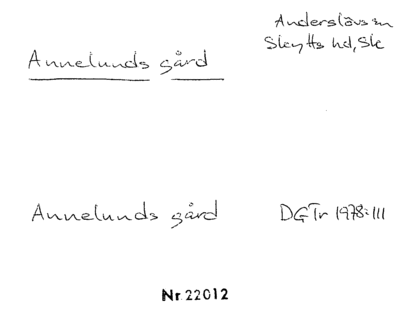 Anderslövs sn
Skytts hd, Sk
Annelunds gård
Annelunds gård DGTr 1978:III
Nr 22012